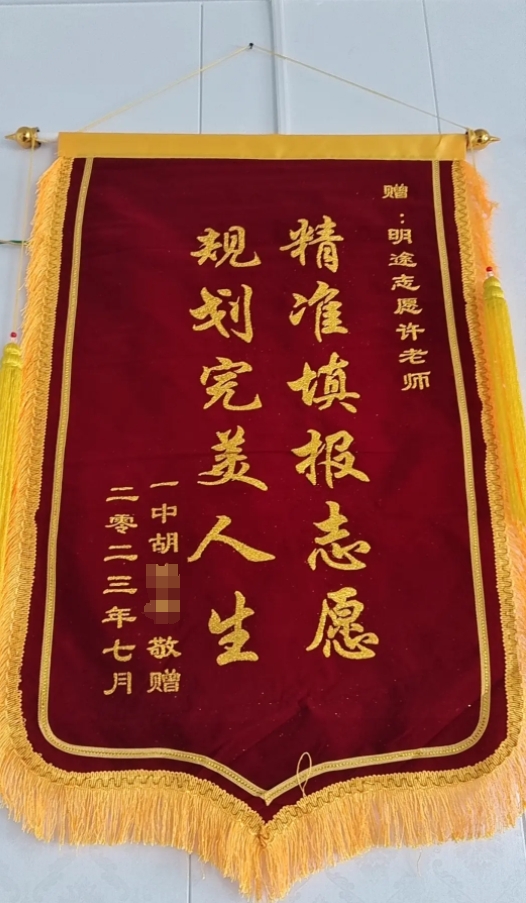 赠：明途志愿许老师
精准填报志愿
规划完美人生
一中胡 敬赠
二零二三年七月